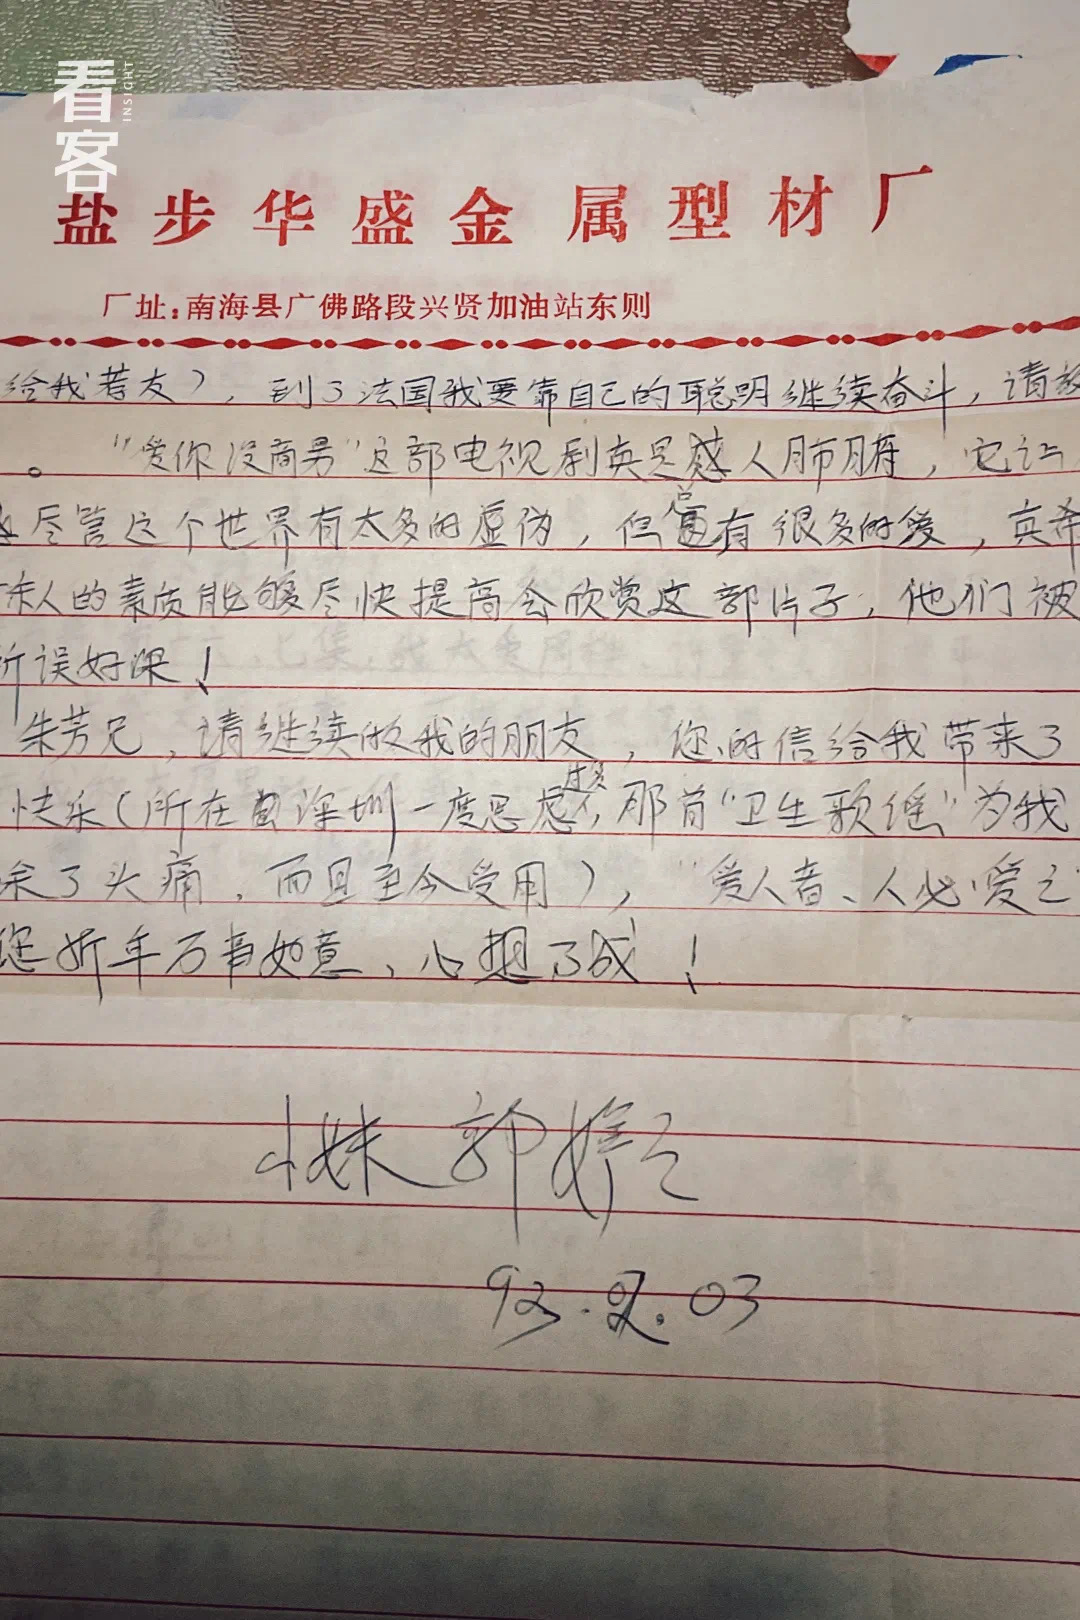 看客
INSIGHT
盐步华盛金属型材厂
厂址：南海县广佛路段兴贤加油站东则
给我若友），到了法国我要靠自己的聪明继续奋斗，请放
。“爱你没商男”这部电视剧英是感人肺腑，它让
尽管这个世界有太多的虚伪，但总有很多的爱，真希
人的素质能够尽快提高会欣赏这部片子，他们被
所误好深！
朱芳兄，请继续做我的朋友，您的信给我带来了
快乐（所在深圳一度思虑过多，那首“卫生歌谣”为我
余了头痛，而且至今受用），“爱人者、人必爱之”
您新年万事如意，心想了成！
小妹 郭婷之
92.2.03